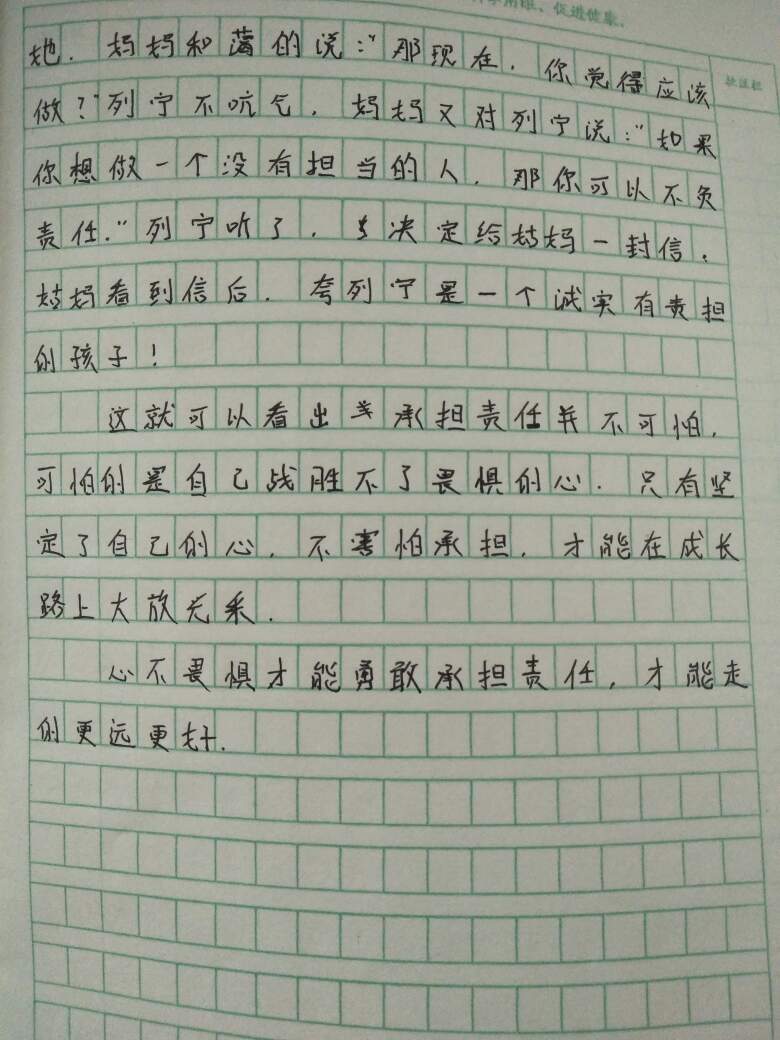 促进健康.
她. 妈妈和蔼的说:"那现在,你觉得应该
做?"列宁不吭气,妈妈又对列宁说:"如果
你想做一个没有担当的人,那你可以不负
责任."列宁听了,决定给姑妈一封信.
姑妈看到信后.夸列宁是一个诚实有责担
的孩子!
这就可以看出承担责任并不可怕,
可怕的是自己战胜不了畏惧的心.只有坚
定了自己的心,不害怕承担,才能在成长
路上大放光釆.
心不畏惧才能勇敢承担责任,才能走
的更远更好.